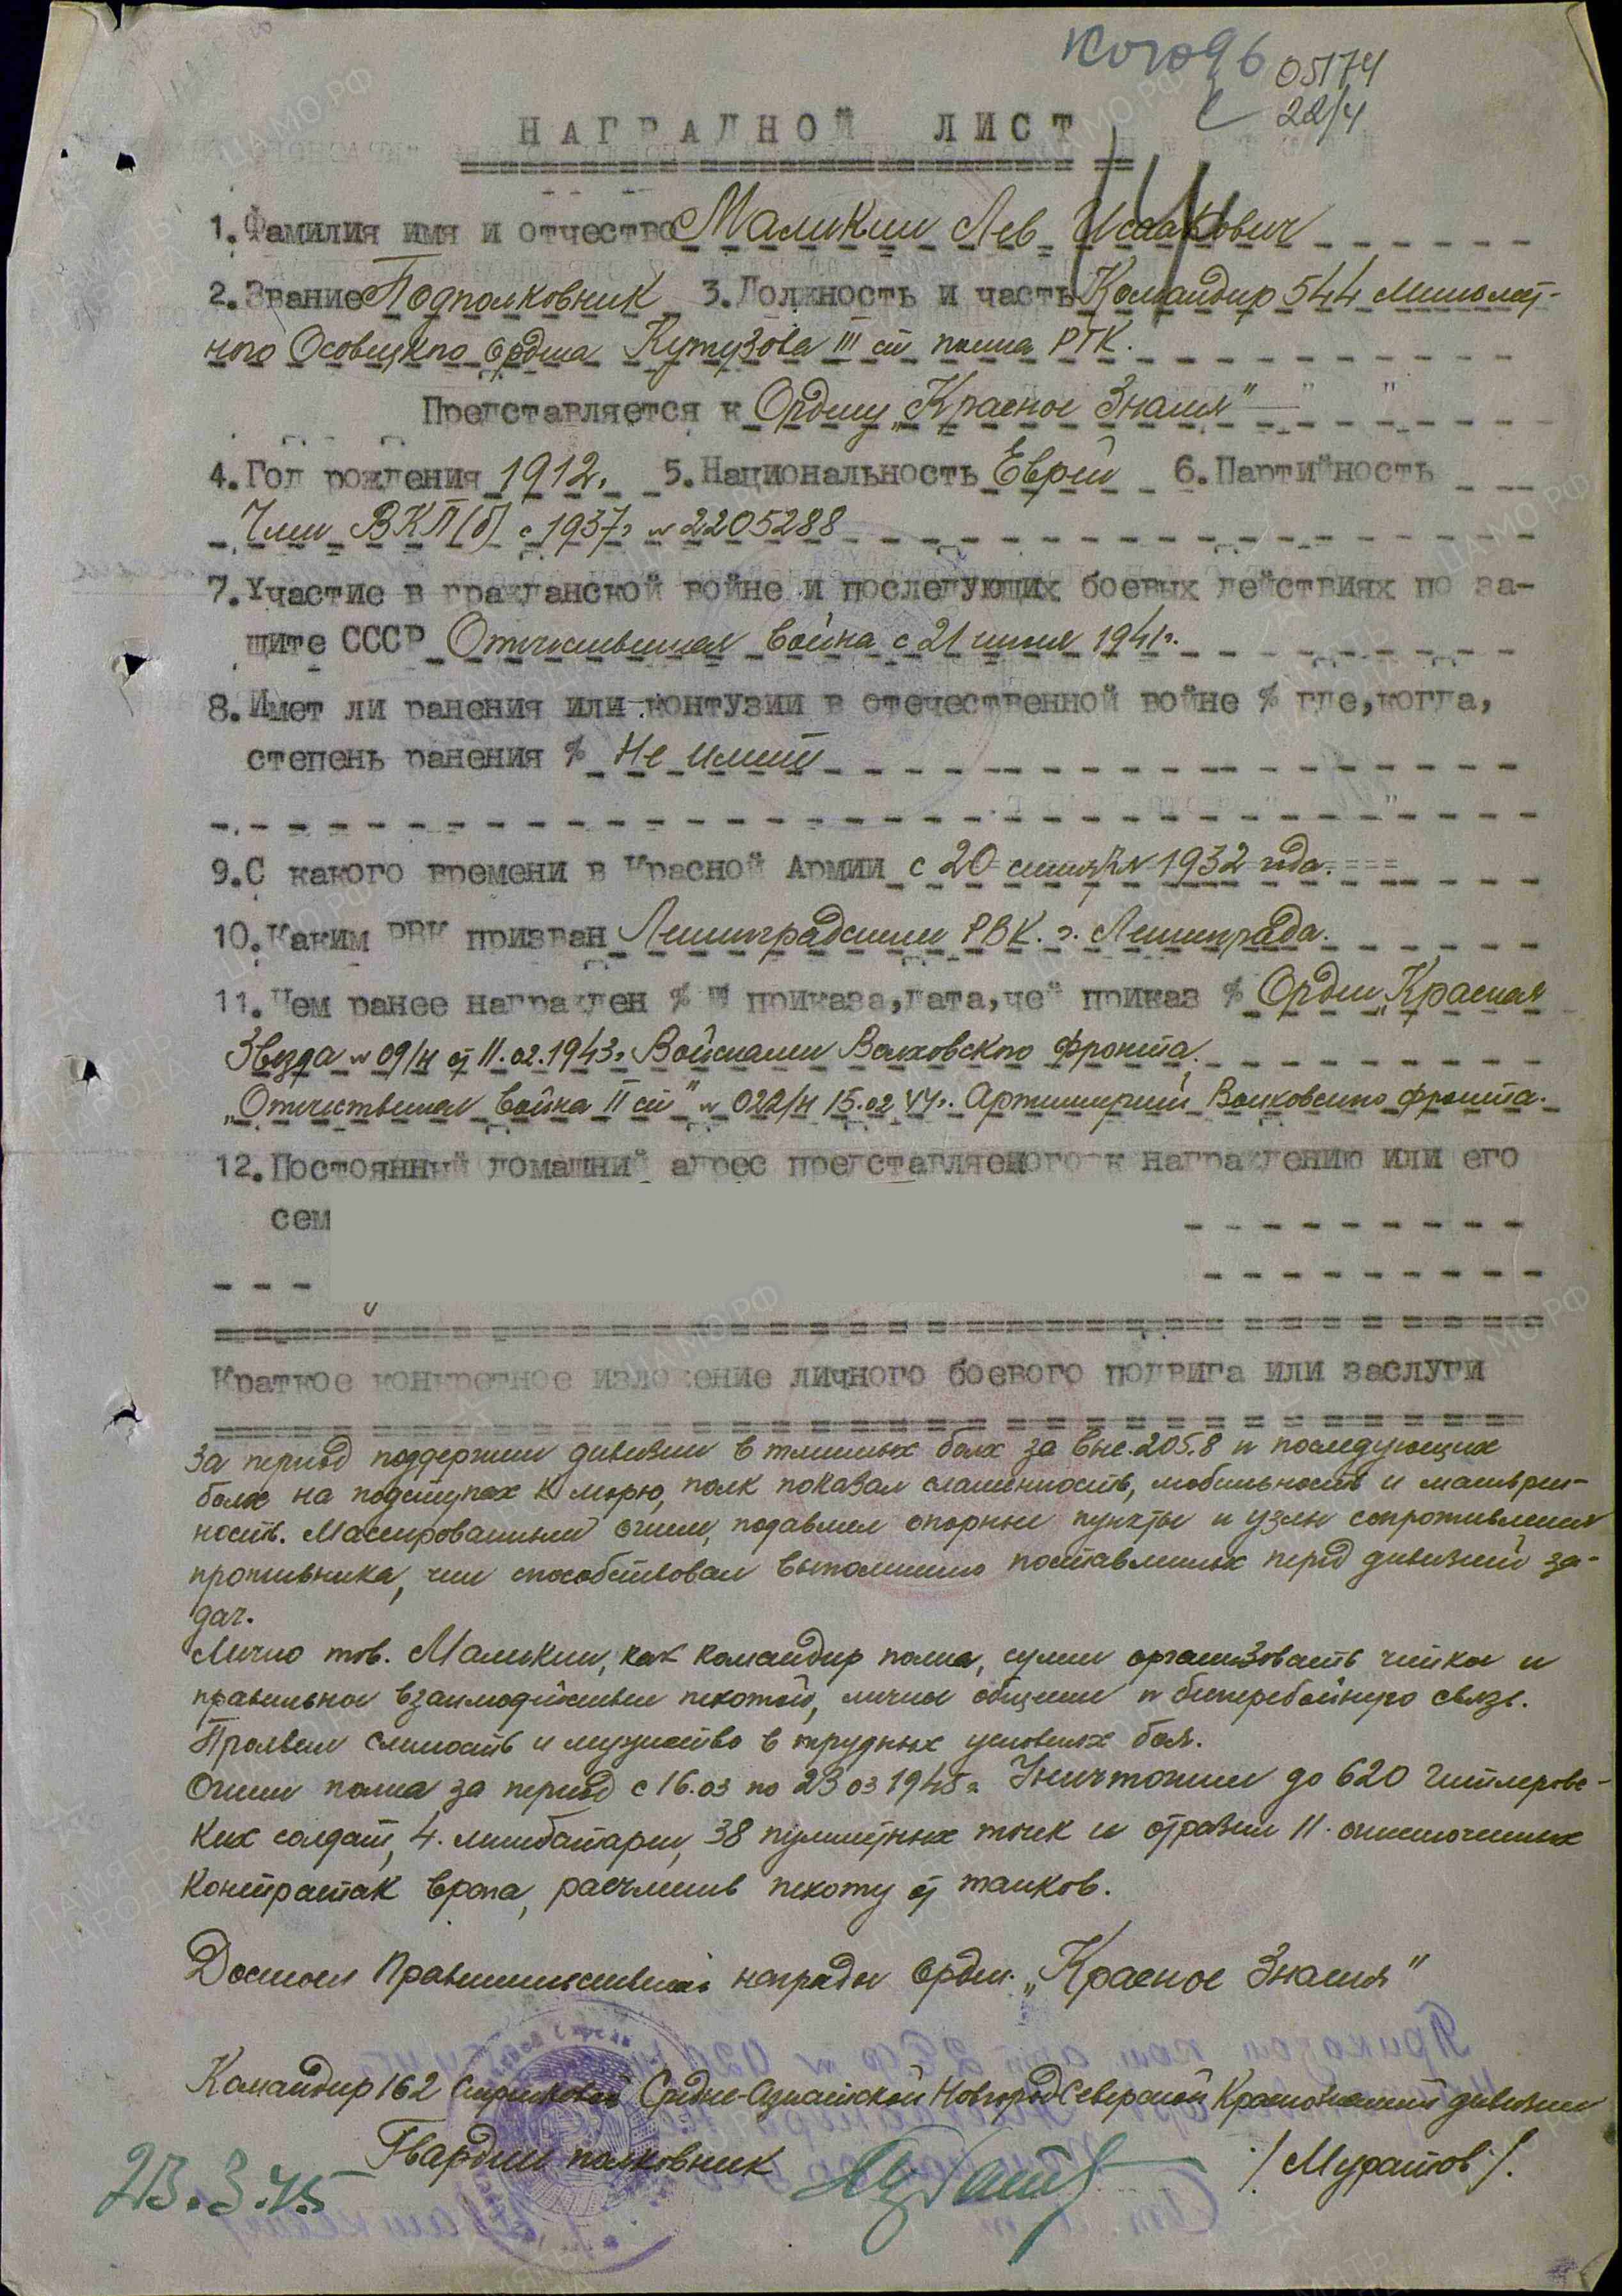 05174
22/4
НАГРАДНОЙ ЛИСТ
1. Фамилия имя и отчество Маликин Лев Исаакович
2. Звание Подполковник 3. Должность и часть Командир 544 Миномет-
ного Осовецкого ордена Кутузова III ст полка РГК.
Представляется к Ордену „Красное Знамя"
4. Год рождения 1912. 5. Национальность Еврей 6. Партийность
Член ВКП(б) с 1937г № 2205288
7. Участие в гражданской войне и последующих боевых действиях по за-
щите СССР Отечественная война с 21 июня 1941г.
8. Имет ли ранения или контузии в отечественной войне % где, когда,
степень ранения % Не имеет
9. С какого времени в Красной Армии с 20 сентября 1932 года.
10. Каким РВК призван Ленинградским РВК. г. Ленинграда.
11. Чем ранее награжден % № приказа, дата, чей приказ % Орден „Красная
Звезда № 09/н от 11.02.1943г Войсками Волховского фронта.
„Отечественная война II ст" № 022/н 15.02 44г. Артиллерией Волховского фронта.
12. Постоянный домашний адрес представляемого к награждению или его
сем
Краткое конкретное изложение личного боевого подвига или заслуги
За период поддержки дивизии в тяжелых боях за выс. 205.8 и последующих
боях на подступах к морю, полк показал слаженность, мобильность и маневрен-
ность. Массированным огнем, подавлял опорные пункты и узлы сопротивления
противника, чем способствовал выполнению поставленных перед дивизией за-
дач.
Лично тов. Маликин, как командир полка, сумел организовать четкое и
правильное взаимодействие пехотой, личное общение и бесперебойную связь.
Проявил смелость и мужество в трудных условиях боя.
Огнем полка за период с 16.03 по 23 03 1945г Уничтожил до 620 гитлеровс-
ких солдат, 4. минбатареи, 38 пулеметных точек и отразил 11. ожесточенных
контратак врага, расчленив пехоту от танков.
Достоин Правительственной награды орден „Красное Знамя"
Командир 162 Стрелковой Средне-Азиатской Новгород Северской Краснознаменной дивизии
Гвардии полковник /Муратов/.
23.3.45